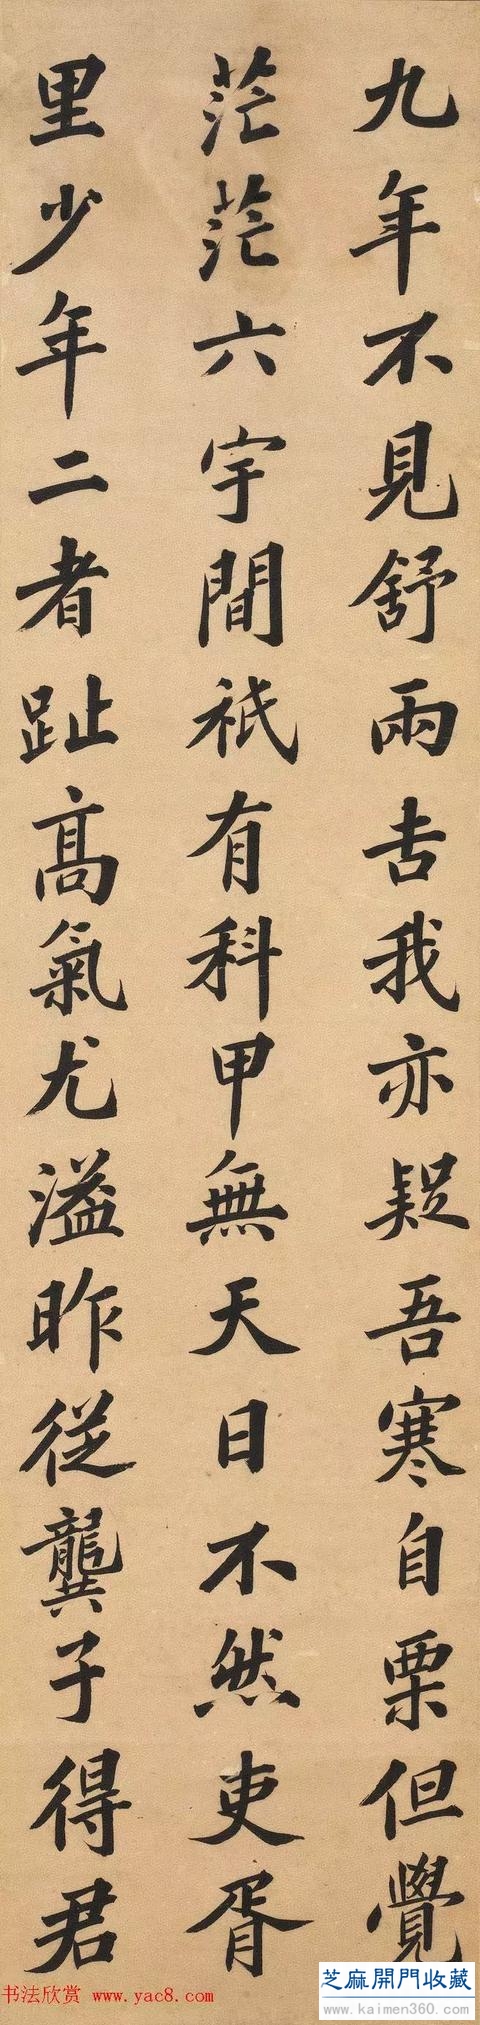 九年不見舒雨吉我亦疑吾寒自栗但覺
茫茫六宇間祇有科甲無天日不然吏胥
里少年二者趾高氣尤溢昨從龔子得君
书法欣赏 www.yac8.com
芝麻開門收藏
www.kaimen360.com